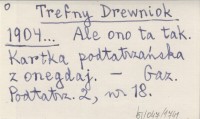 Trefny Drewniok
1904... Ale ono ta tak.
Kartka podtatrzańska
z onegdaj. – Gaz.
Podtatrz. 2, nr 18.